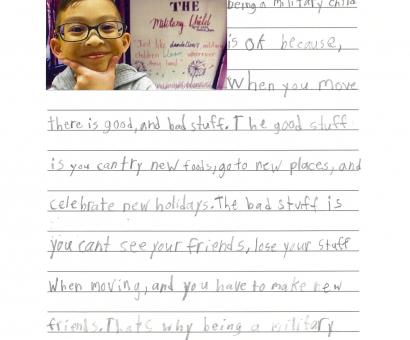 THE
Military Child
"Just like dandelions military
children bloom wherever
they land"
being a military child
is ok because,
When you move
there is good, and bad stuff. The good stuff
is you can try new foods, go to new places, and
celebrate new holidays. The bad stuff is
you cant see your friends, lose your stuff
When moving, and you have to make new
friends. Thats why being a military